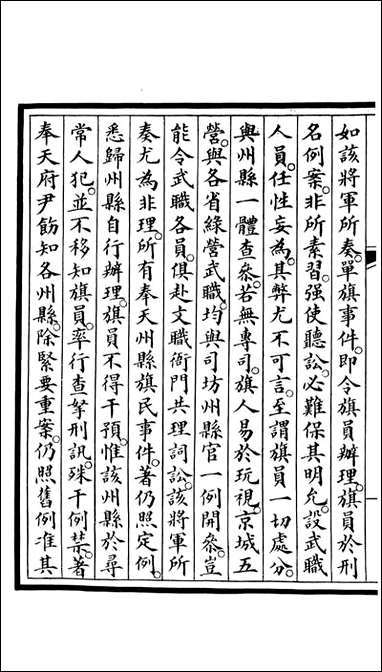 如該將軍所奏。單旗事件。即令旗員辦理。旗員於刑
名例案。非所素習。强使聽訟。必難保其明允。設武職
人員。任性妄為。其弊尤不可言。至謂旗員一切處分。
與州縣一體查參。若無專司。旗人易於玩視。京城五
營。與各省綠營武職。均與司坊州縣官一例開參。豈
能令武職各員。俱赴文職衙門共理詞訟。該將軍所
奏尤為非理。所有奉天州縣旗民事件。著仍照定例。
悉歸州縣自行辦理。旗員不得干預。惟該州縣於尋
常人犯。並不移知旗員。率行查拏刑訊。殊干例禁。著
奉天府尹飭知各州縣。除緊要重案。仍照舊例准其